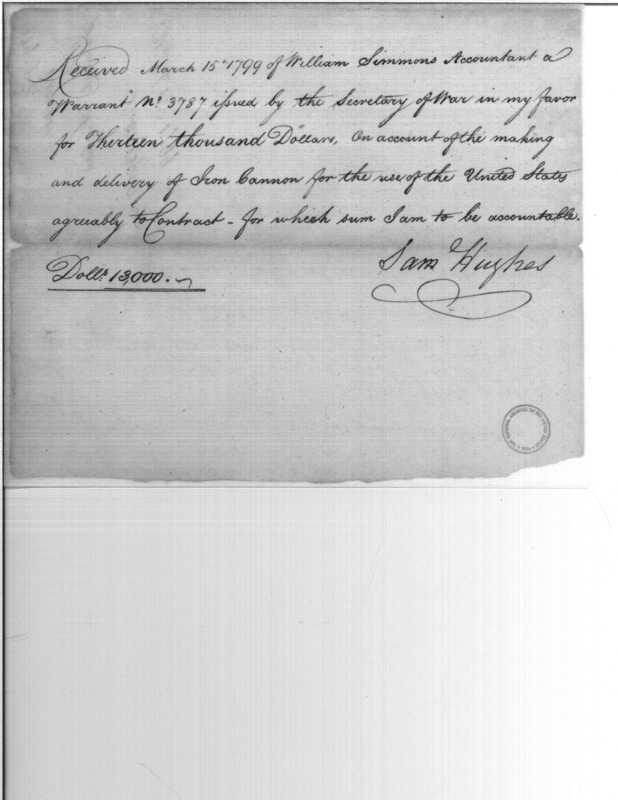 Received March 15th 1799 of William Simmons Accountant a
Warrant No. 3787 issued by the Secretary of War in my favor
for Thirteen thousand Dollars, On account of the making
and delivery of Iron Cannon for the use of the United States
agreeably to Contract - for which sum I am to be accountable.
Dolls. 13,000.
Sam Hughes